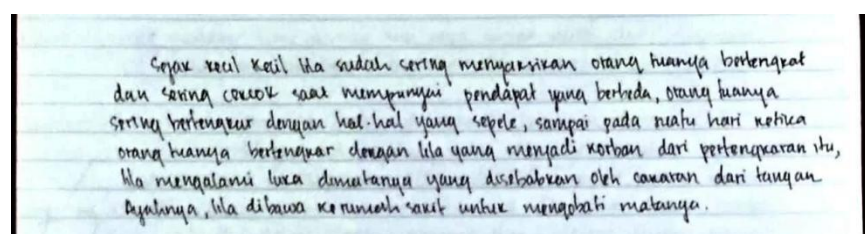 Sejak kecil Keil lila sudah sering menyaksikan orang tuanya bertengkar
dan sering cekcok saat mempunyai pendapat yang berbeda, orang tuanya
sering bertengkar dengan hal-hal yang sepele, sampai pada suatu hari ketika
orang tuanya bertengkar dengan lila yang menjadi korban dari pertengkaran itu,
lila mengalami luka dimatanya yang disebabkan oleh cakaran dari tangan
Ayahnya, lila dibawa kerumah sakit untuk mengobati matanya.